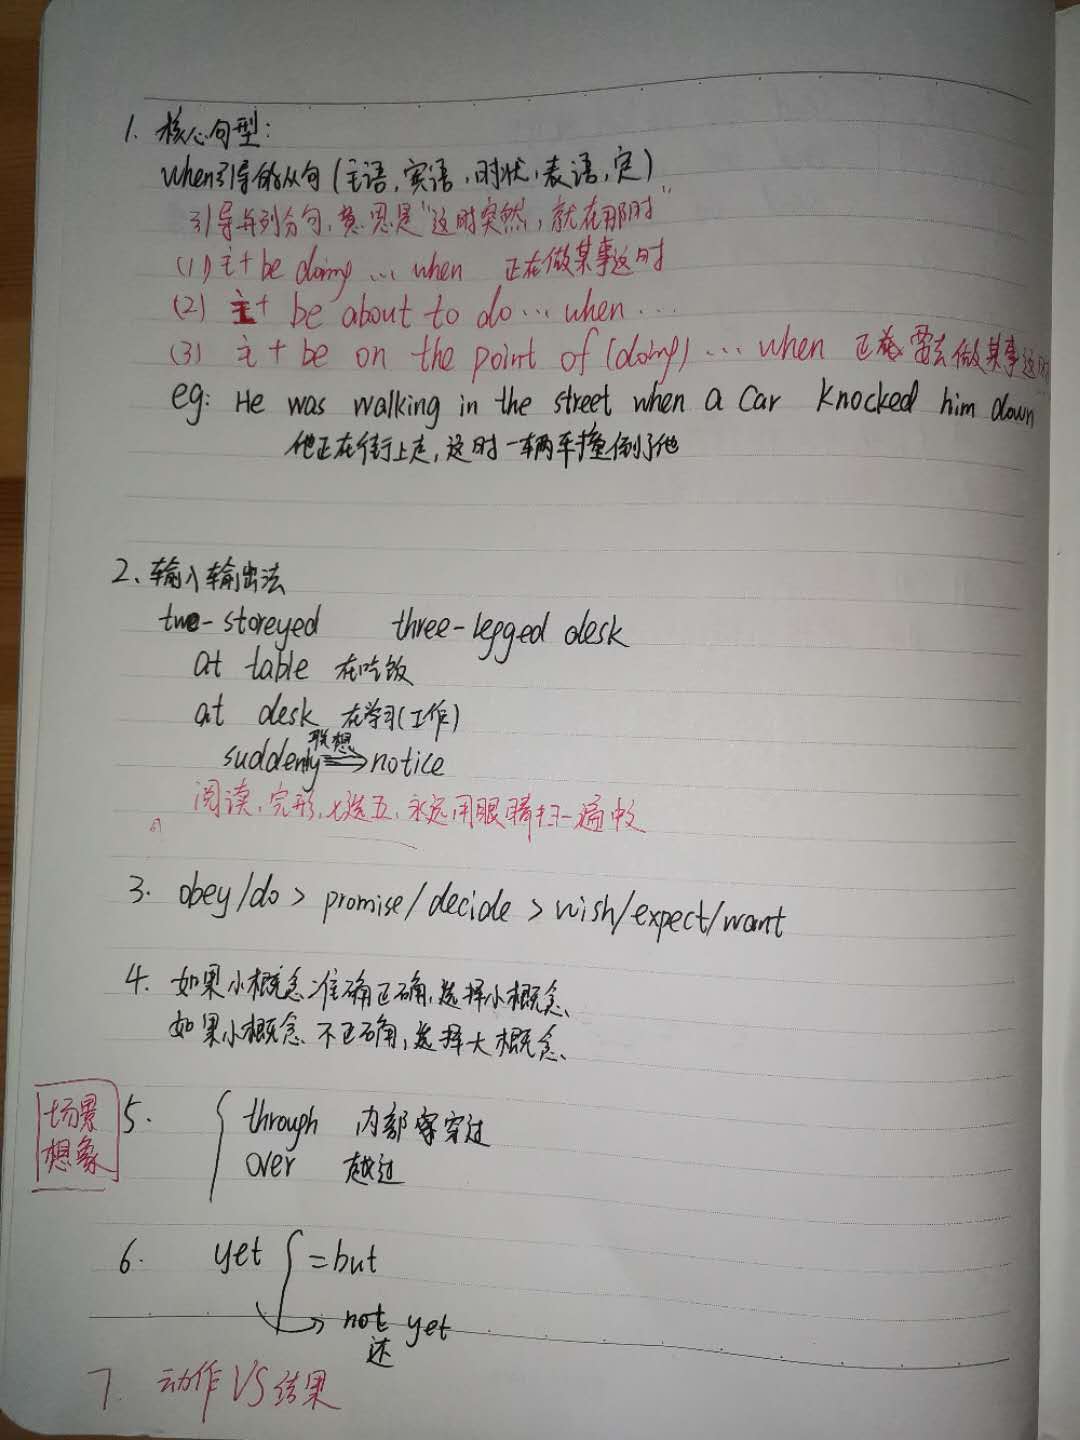 1. 核心句型:
when引导的从句(主语,宾语,时状,表语,定)
引导并列分句,意思是"这时突然,就在那时"
(1)主+be doing … when 正在做某事这时
(2) 主+ be about to do … when …
(3) 主+be on the point of (doing) … when 正在 需去做某事这时
eg: He was walking in the street when a Car knocked him down
他正在街上走,这时一辆车撞倒了他
2、输入输出法
two-storeyed three-legged desk
at table 在吃饭
at desk 在学习(工作)
联想
suddenly ⟹ notice
阅读,完形,七选五,永远用眼睛扫一遍
3. obey/do > promise/decide > wish/expect/want
4. 如果小概念准确正确,选择小概念、
如果小概念不正确,选择大概念、
场景
想象
5. { through 内部穿过
over 越过
6. yet { =but
→ not yet
还
7. 动作VS结果